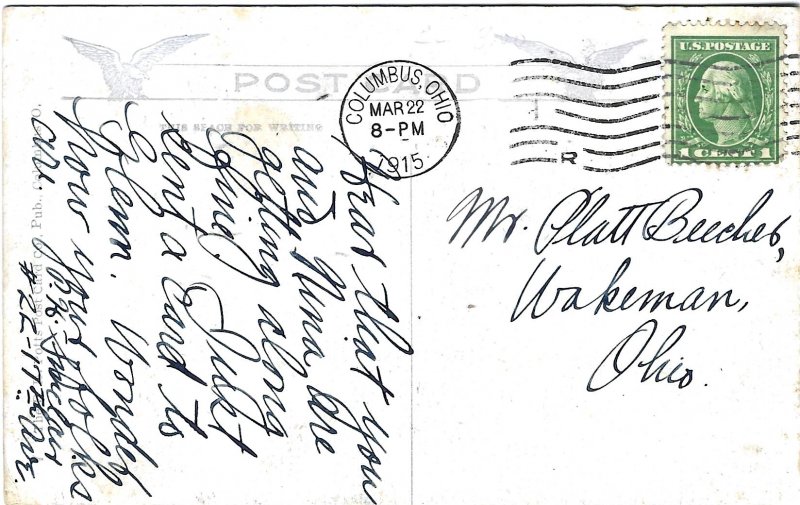 POST CARD
THIS SPACE FOR WRITING
COLUMBUS, OHIO
MAR 22
8-PM
1915
R
U.S. POSTAGE
1 CENT 1
Mr. Platt Beecher,
Wakeman,
Ohio.
Hear that you
and Nina are
getting along
fine. Just
sent a card to
Glenn. Wonder
how your folks
are
Post Card Co., Pub., Columbus, O.